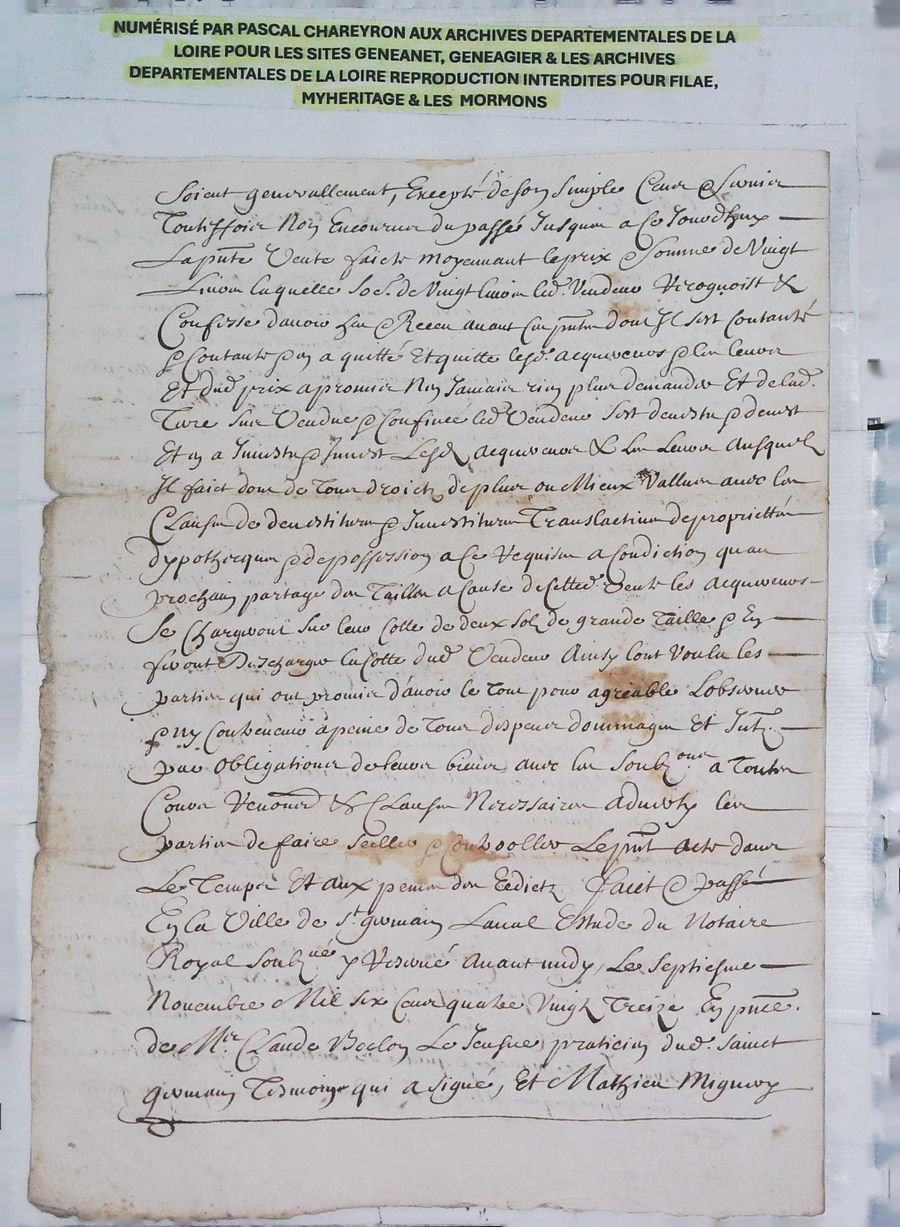 NUMÉRISÉ PAR PASCAL CHAREYRON AUX ARCHIVES DEPARTEMENTALES DE LA
LOIRE POUR LES SITES GENEANET, GENEAGIER & LES ARCHIVES
DEPARTEMENTALES DE LA LOIRE REPRODUCTION INTERDITES POUR FILAE,
MYHERITAGE & LES MORMONS
Soient generallement, Excepté de son simple Cens &
Touttesfois Non Encourus du passé Jusques a Ce Jourdhuy
La pnte Vente faicte moyennant le prix & Somme de Vingt
Livres laquelle So.e de Vingt livres led. Vendeur Recognoist &
Confesse davoir heu & Receu avant Ces pntes dont Il sest Contanté
& Contante & en a quitté Et quitte lesd. acquereurs & les leurs
Et dud prix a promis Nen Jamais rien plus demander Et de lad.
Terre sus Vendue & Confinée led Vendeur sest devestu & devest
Et en a Investu & Invest Lesd acquereurs & les Leurs Ausquels
Il faict don de Tous droictz de plus ou Mieux Vallue avec les
Clauses de devestiture & Investiture Translaction de proprietté
dypothecque & de possession a Ce Requise a Condiction quau
prochain partage des Tailles a Cause de Cette Vente les Acquereurs
Se Chargeront sur leur Cotte de deux solz de grande Taille & En
feront Descharger la Cotte dud Vendeur Ainsy lont Voulu les
parties qui ont promis davoir le Tout pour agreable Lobserver
& ny Contrevenir a peine de Tous despens dommages Et Intz
par Obligations de leurs biens avec les Soubz.ons a Touttes
Cours Renond & Clauses Necessaires advertis les
parties de faire seeller & Controoller Le pnt acte dans
Le Temps Et aux peines des Edictz faict & passé
En la Ville de St germain Laval Estude du Notaire
Royal Soubz.né y Reservé Avant midy, Le Septiesme
Novembre Mil six Cens quatre Vingt Treize En pnce.
de Mre Claude Le Jeusne praticien dud. Sainct
germain Tesmoings qui a signé, Et Mathieu